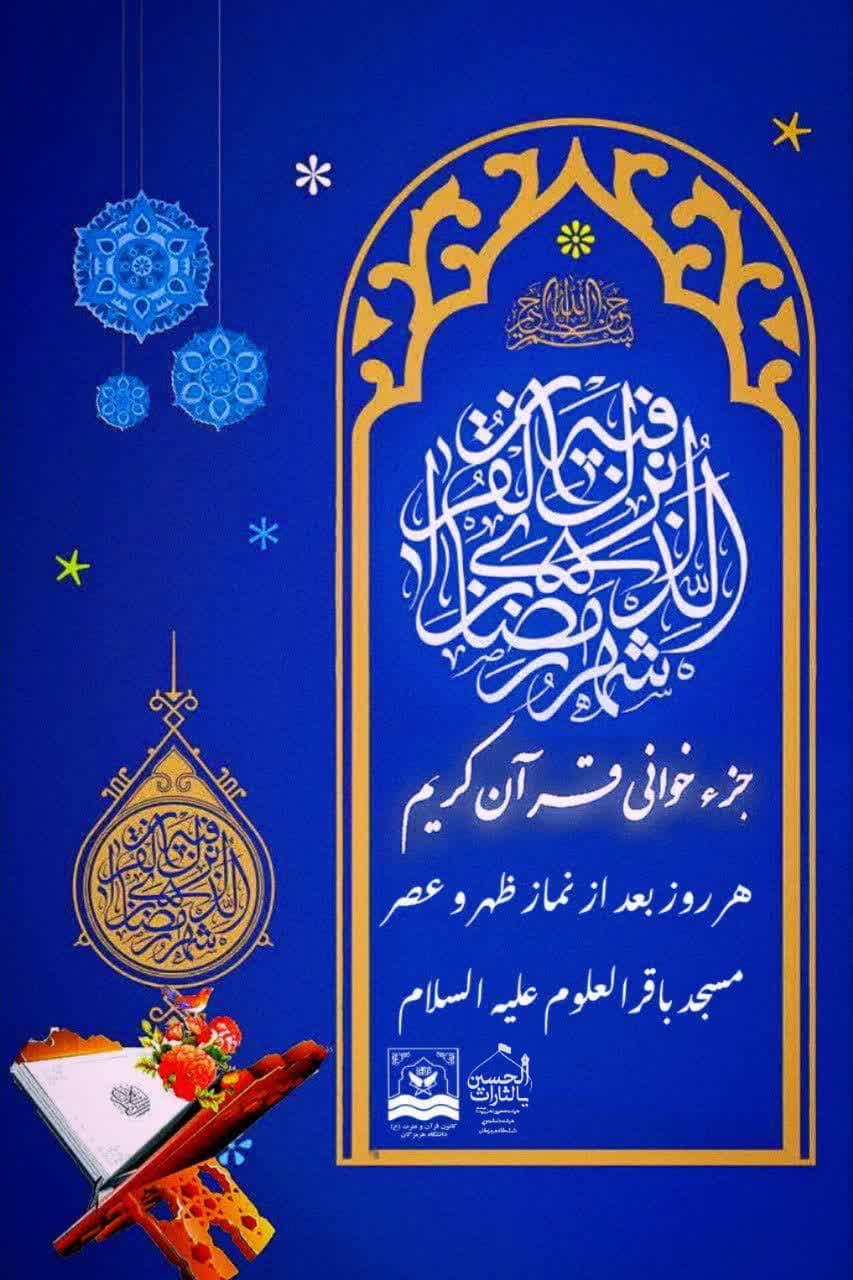 بسم الله الرحمن الرحیم
شهر رمضان الذی انزل فیه القرآن
جزء خوانی قرآن کریم
هر روز بعد از نماز ظهر و عصر
مسجد باقرالعلوم علیه السلام
شهر رمضان الذی انزل فیه القرآن
یالثارات الحسین
کانون قرآن و عترت (ع)
دانشگاه هرمزگان